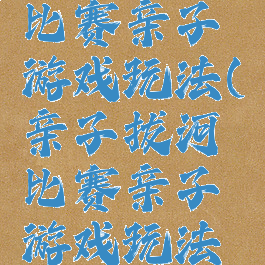 比赛亲子
游戏玩法(
亲子拔河
比赛亲子
游戏玩法